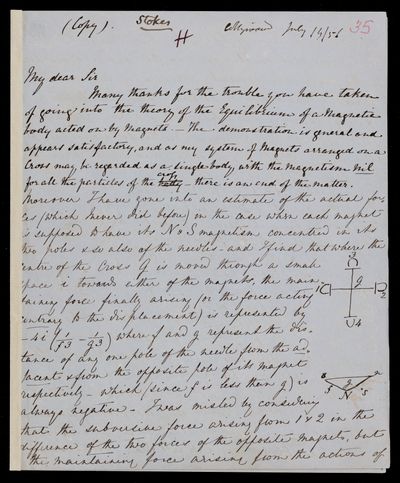 (Copy). Stokes July 19/56 35
My dear Sir
Many thanks for the trouble you have taken
of going into the theory of the Equilibrium of a Magnetic
body acted on by Magnets. — The demonstration is general and
appears satisfactory, and as my system of Magnets arranged on a
Cross may be regarded as a single body with the magnetism nil
for all the particles of the cross — there is an end of the matter.
Moreover I have gone into an estimate of the actual for-
ces (which I never did before) in the case when each magnet
is supposed to have its N & S magnetism concentred in its
two poles & so also of the needles — and I find that where the
centre of the Cross G is moved through a small
space i towards either of the magnets, the main-
taining force finally arising (or the force acting
contrary to the displacement) is represented by
— 4i (1/f3 — 1/g3) where f and g represent the dis-
tance of any one pole of the needle from the ad-
jacent & from the opposite pole of its magnet
respectively — which (since f is less than g) is
always negative. — I was misled by considering
that the subversive force arising from 1 & 2 in the
difference of the two forces of the opposite magnets, but
the maintaining force arising from the actions of
3
g
2
4
S
N
S